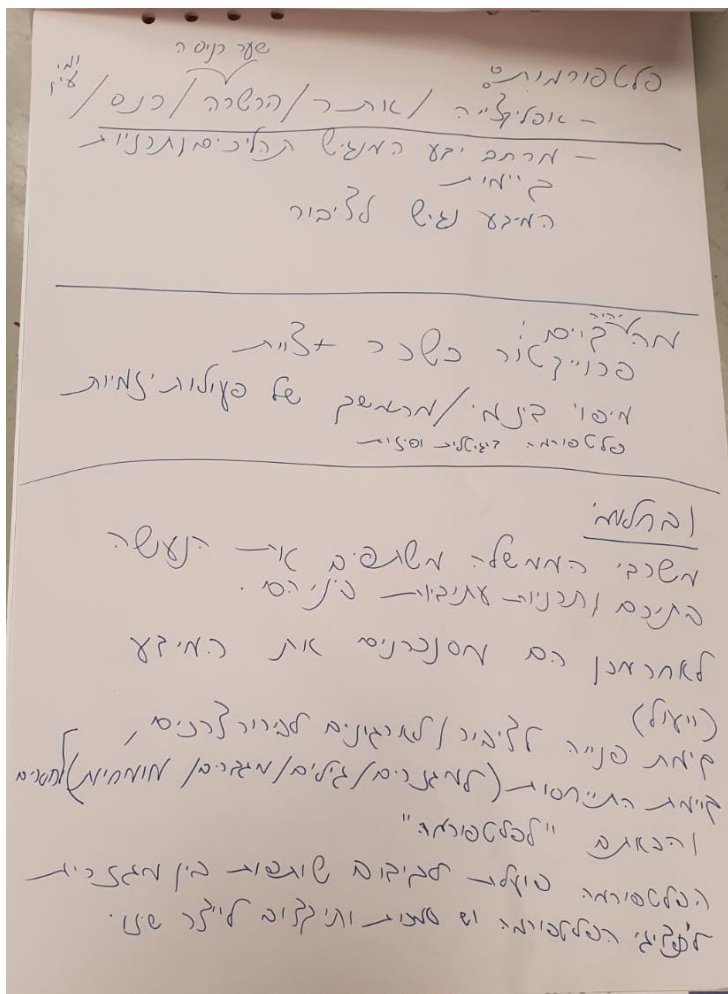 שער כניסה
פלטפורמות:
- אפליקצייה / אתר / הרשרה / כנס / ימי עיון
- מרחב ידע המנגיש תהליכים ותכניות
קיימות
המידע נגיש לציבור
יהיה
פרוייקטור כשכר + צוות
מיפוי דינמי / מראשך של פעילות יזמיות
פלטפורמה דיגיטלית ופיזית
ובחלום:
משרדי הממשלה משתפים את הנעשה
בתוכם ותכניות עתידיות ביניהם.
לאחר מכן הם מסנכרנים את המידע
(ייעול)
קיימת פנייה לציבור / לארגונים לבירור צרכים,
קיימת התייחסות (למגזרים / גילים / מגדרים / מומחיות) לחסרים
והבאתם "לפלטפורמה"
הפלטפורמה פועלת לקידום שותפות בין מגזרית
לנציגי הפלטפורמה יש סמכות ותקציב לייצר שינוי.